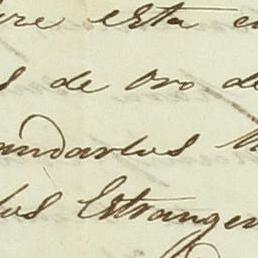 re esta e
s de oro de
andarlos
los Estranger